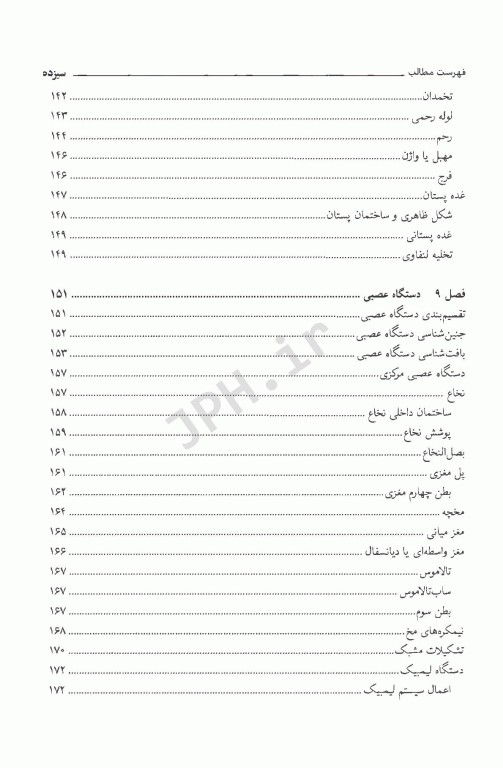 فهرست مطالب سیزده
تخمدان ۱۴۲
لوله رحمی ۱۴۳
رحم ۱۴۴
مهبل یا واژن ۱۴۶
فرج ۱۴۶
غده پستان ۱۴۷
شکل ظاهری و ساختمان پستان ۱۴۸
غده پستانی ۱۴۹
تخلیه لنفاوی ۱۴۹
فصل ۹ دستگاه عصبی ۱۵۱
تقسیم‌بندی دستگاه عصبی ۱۵۱
جنین‌شناسی دستگاه عصبی ۱۵۲
بافت‌شناسی دستگاه عصبی ۱۵۳
دستگاه عصبی مرکزی ۱۵۷
نخاع ۱۵۷
ساختمان داخلی نخاع ۱۵۸
پوشش نخاع ۱۵۹
بصل‌النخاع ۱۶۱
پل مغزی ۱۶۱
بطن چهارم مغزی ۱۶۲
مخچه ۱۶۴
مغز میانی ۱۶۵
مغز واسطه‌ای یا دیانسفال ۱۶۶
تالاموس ۱۶۷
ساب‌تالاموس ۱۶۷
بطن سوم ۱۶۷
نیمکره‌های مخ ۱۶۸
تشکیلات مشبک ۱۷۰
دستگاه لیمبیک ۱۷۲
اعمال سیستم لیمبیک ۱۷۲
JPH.ir